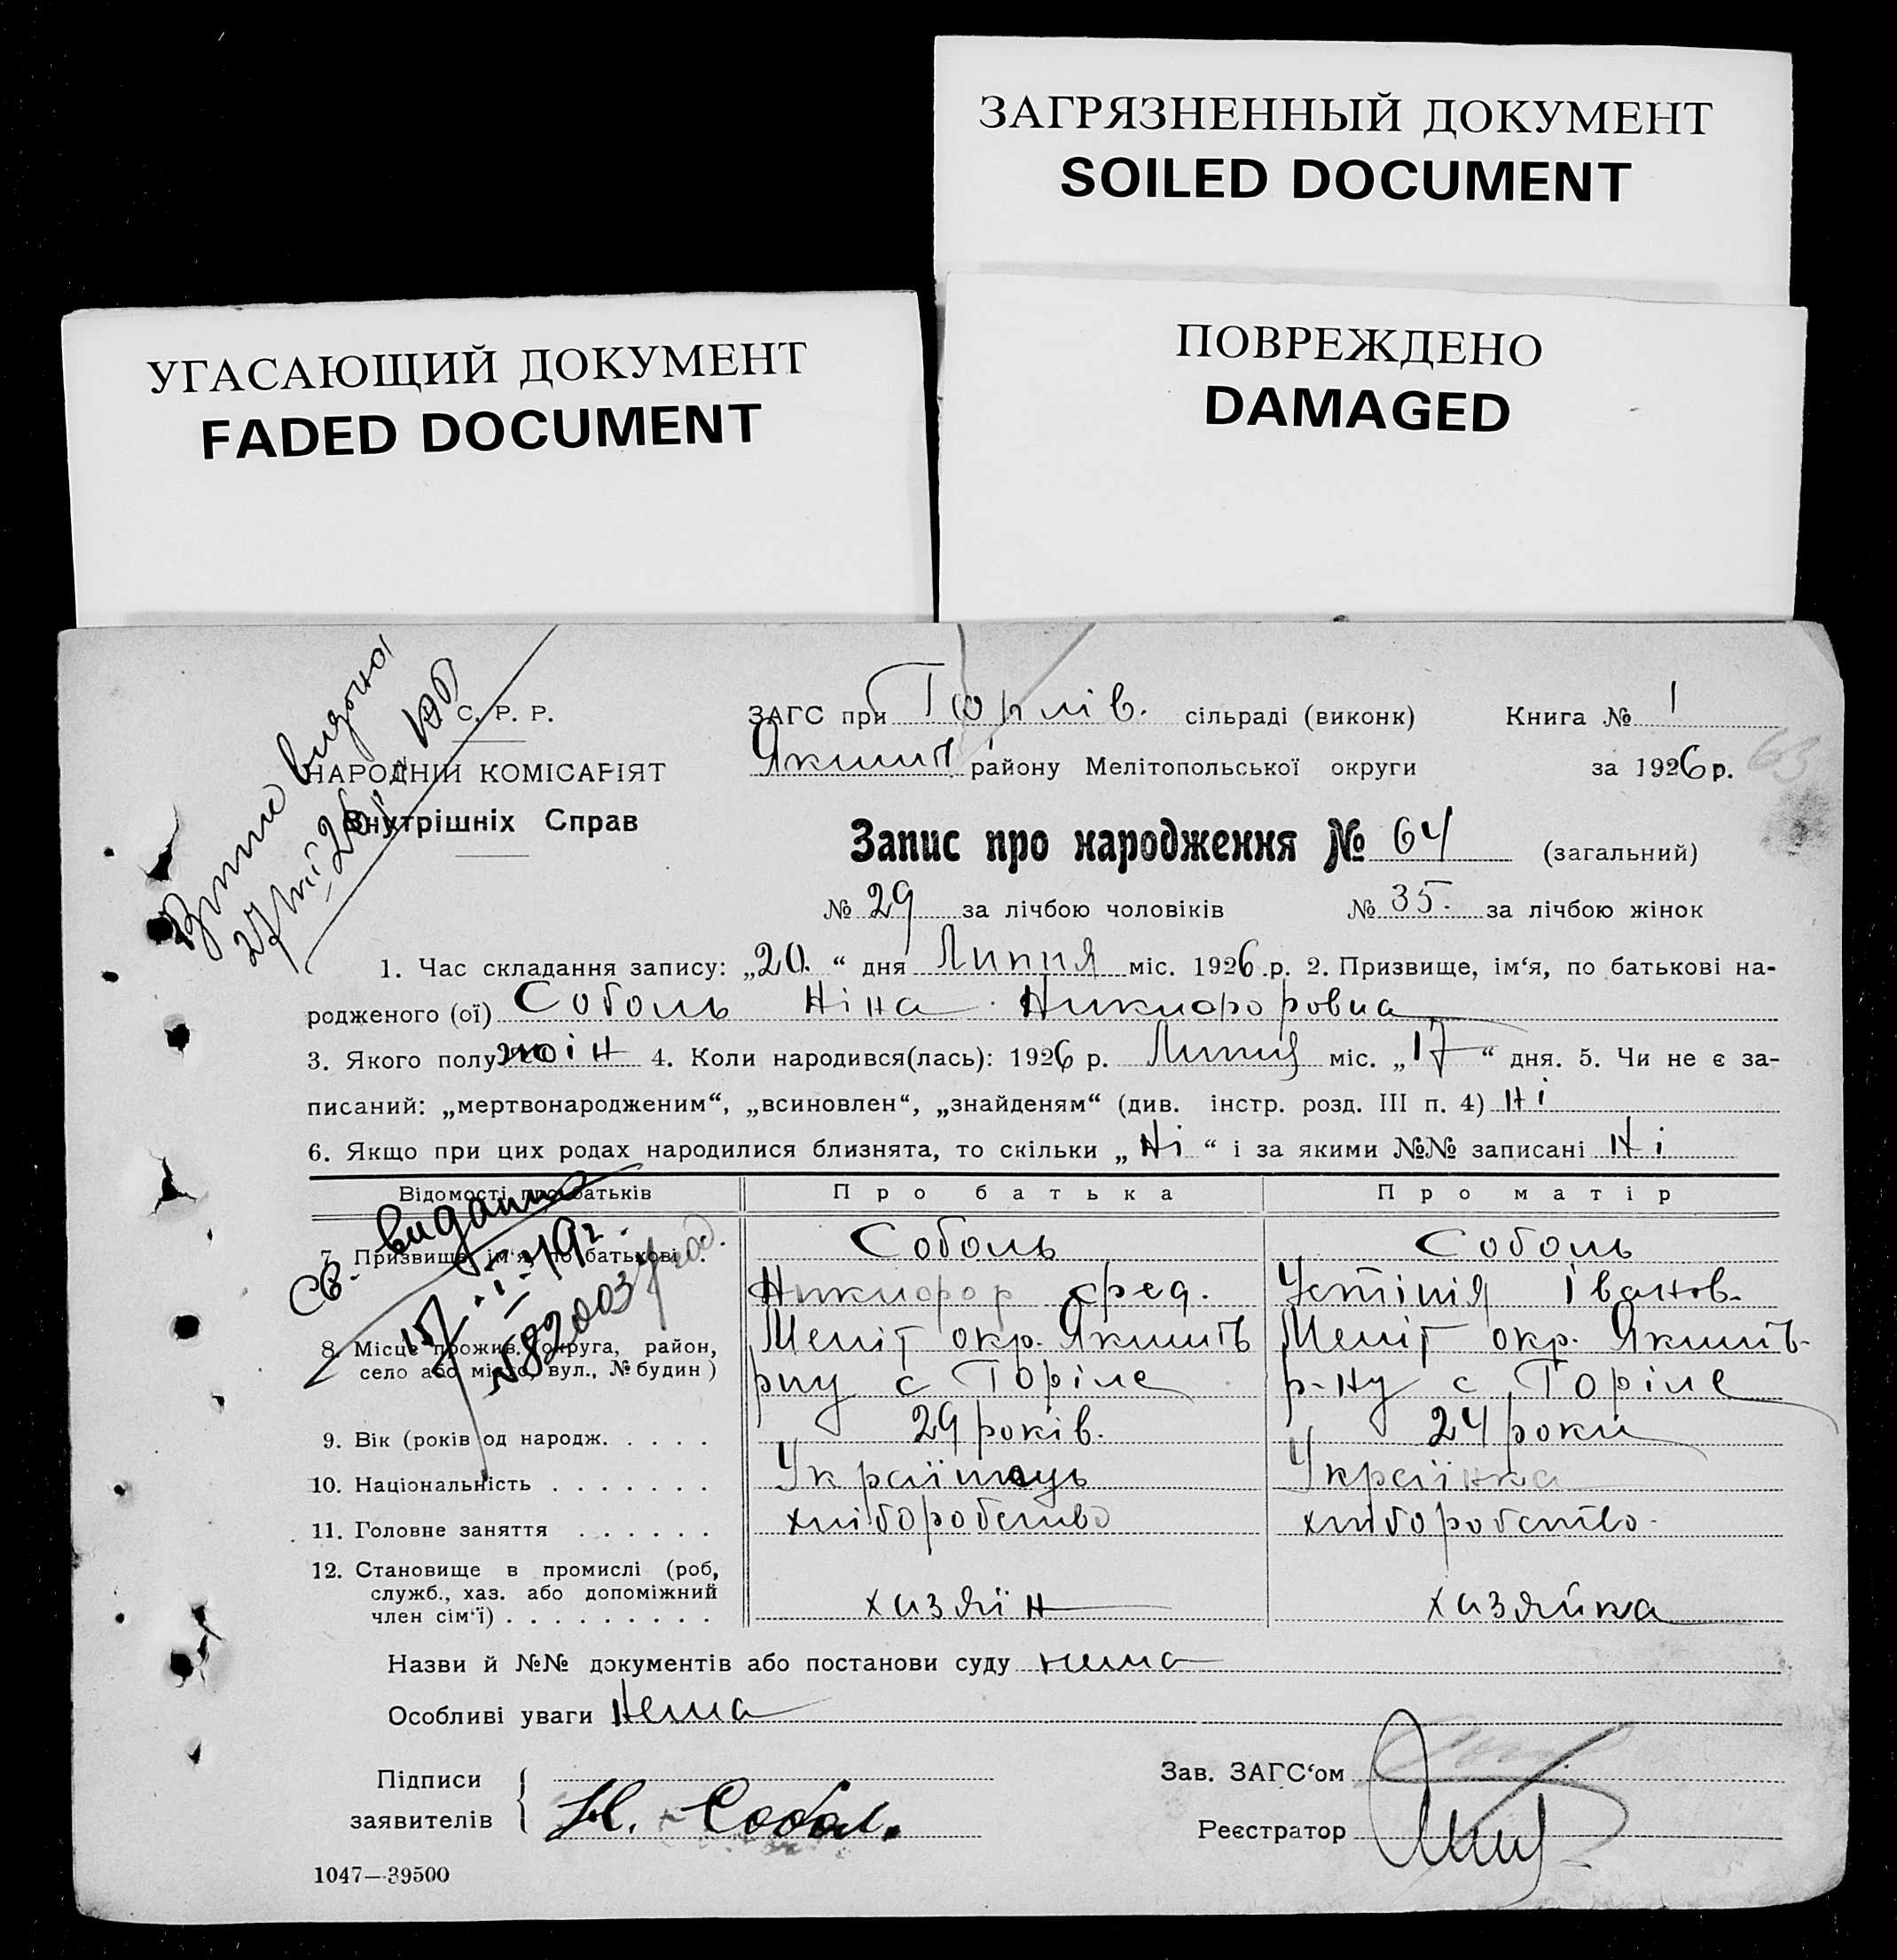 ЗАГРЯЗНЕННЫЙ ДОКУМЕНТ
SOILED DOCUMENT
УГАСАЮЩИЙ ДОКУМЕНТ
FADED DOCUMENT
ПОВРЕЖДЕНО
DAMAGED
С. Р. Р.
НАРОДНІЙ КОМІСАРІЯТ
Внутрішніх Справ
ЗАГС при сільраді (виконк) Книга № 1
Якимів району Мелітопольської округи за 1926 р.
63
Запис про народження № 64 (загальний)
№ 29 за лічбою чоловіків № 35. за лічбою жінок
1. Час складання запису: „20.“ дня Липня міс. 1926 р. 2. Призвище, ім‘я, по батькові на-
родженого (ої) Соболь Ніна Никифоровна
3. Якого полу жін 4. Коли народився(лась): 1926 р. Липня міс. „17“ дня. 5. Чи не є за-
писаний: „мертвонародженим“, „всиновлен“, „знайденям“ (див. інстр. розд. III п. 4) Ні
6. Якщо при цих родах народилися близнята, то скільки „Ні“ і за якими №№ записані Ні
Відомості про батьків Про батька Про матір
7. Призвище, ім‘я, по батькові . Соболь Соболь
Никифор Фед. Устінія Іванов.
8. Місце прожив. (округа, район, Меліт окр. Якимів Меліт окр. Якимів-
село або місто, вул., № будин) рну с Торіле р-ну с Торіле
9. Вік (років од народж. . . . . 29 років. 24 роки
10. Національність . . . . . . . Українець Українка
11. Головне заняття . . . . . . хліборобство хліборобство.
12. Становище в промислі (роб,
служб., хаз. або допоміжний
член сім‘ї) . . . . . . . . . хазяїн хазяйка
Св. видано
Назви й №№ документів або постанови суду нема
Особливі уваги Нема
Підписи
заявителів Н. Собол.
Зав. ЗАГС‘ом
Реєстратор
1047—39500